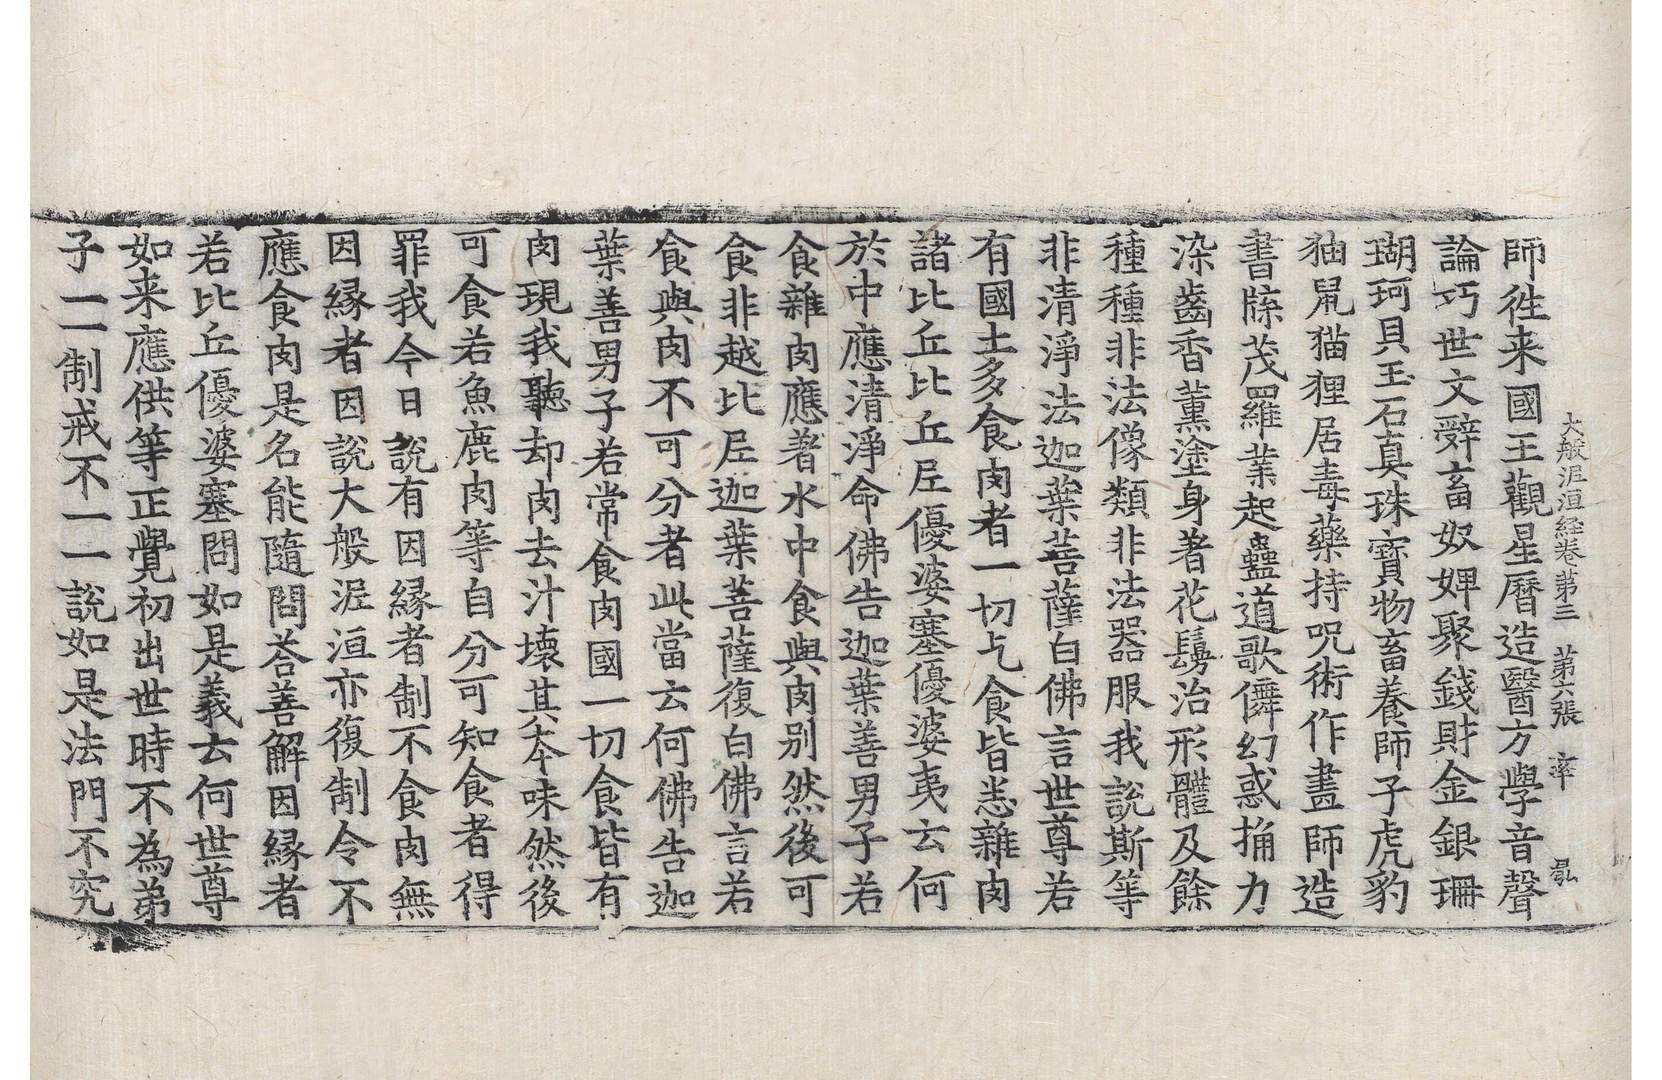 大般泥洹経卷第三 第六張 率
師往来國王觀星曆造醫方學音聲
論巧世文辤畜奴婢聚錢財金銀珊
瑚珂貝玉石真珠寳物畜養師子虎豹
㹨鼠猫狸居毒藥持呪術作畫師造
書牒茂羅業起蠱道歌儛幻惑捔力
染齒香薰塗身著花鬘治形體及餘
種種非法像類非法器服我說斯等
非清淨法迦葉菩薩白佛言世尊若
有國土多食肉者一切乞食皆悉雜肉
諸比丘比丘尼優婆塞優婆夷云何
於中應清淨命佛告迦葉善男子若
食雜肉應著水中食與肉別然後可
食非越比尼迦葉菩薩復白佛言若
食與肉不可分者此當云何佛告迦
葉善男子若常食肉國一切食皆有
肉現我聽却肉去汁壞其夲味然後
可食若魚鹿肉等自分可知食者得
罪我今日說有因縁者制不食肉無
因縁者因說大般泥洹亦復制令不
應食肉是名能隨問荅善解因縁者
若比丘優婆塞問如是義云何世尊
如来應供等正覺初出世時不為弟
子一一制戒不一一說如是法門不究